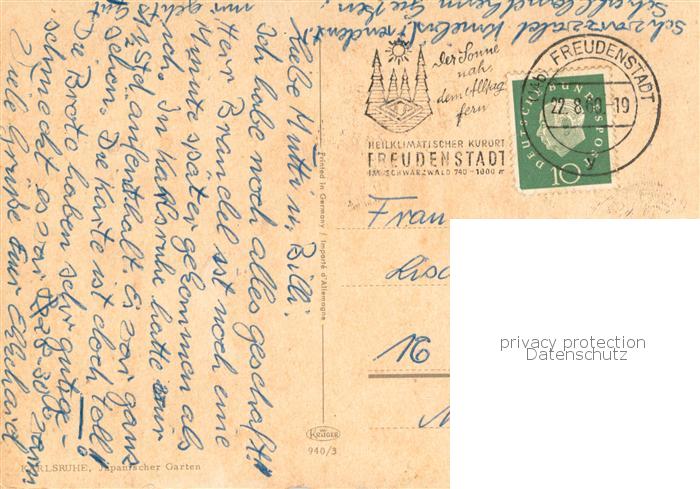 Schwarzwald
Liebe Mutti u. Billi.
Ich habe noch alles geschafft!
Herr Brandel ist noch eine
Minute später gekommen als
ich. In Karlsruhe hatte wir
1½ Std. aufenthalt. Es war ganz
schön. Die Karte ist doch toll!
Die Brote haben sehr gut ge-
schmeckt es war
Viele Grüße euer Ekkehard
nur gehts
gut
Printed in Germany / Importé d'Allemagne
KRÜGER
940/3
KARLSRUHE, Japanischer Garten
der Sonne
nah,
dem Alltag
fern
HEILKLIMATISCHER KURORT
FREUDENSTADT
IM SCHWARZWALD 740-1000 m
FREUDENSTADT
22.8.60-19
DEUTSCHE BUNDESPOST
10
Frau
16
privacy protection
Datenschutz